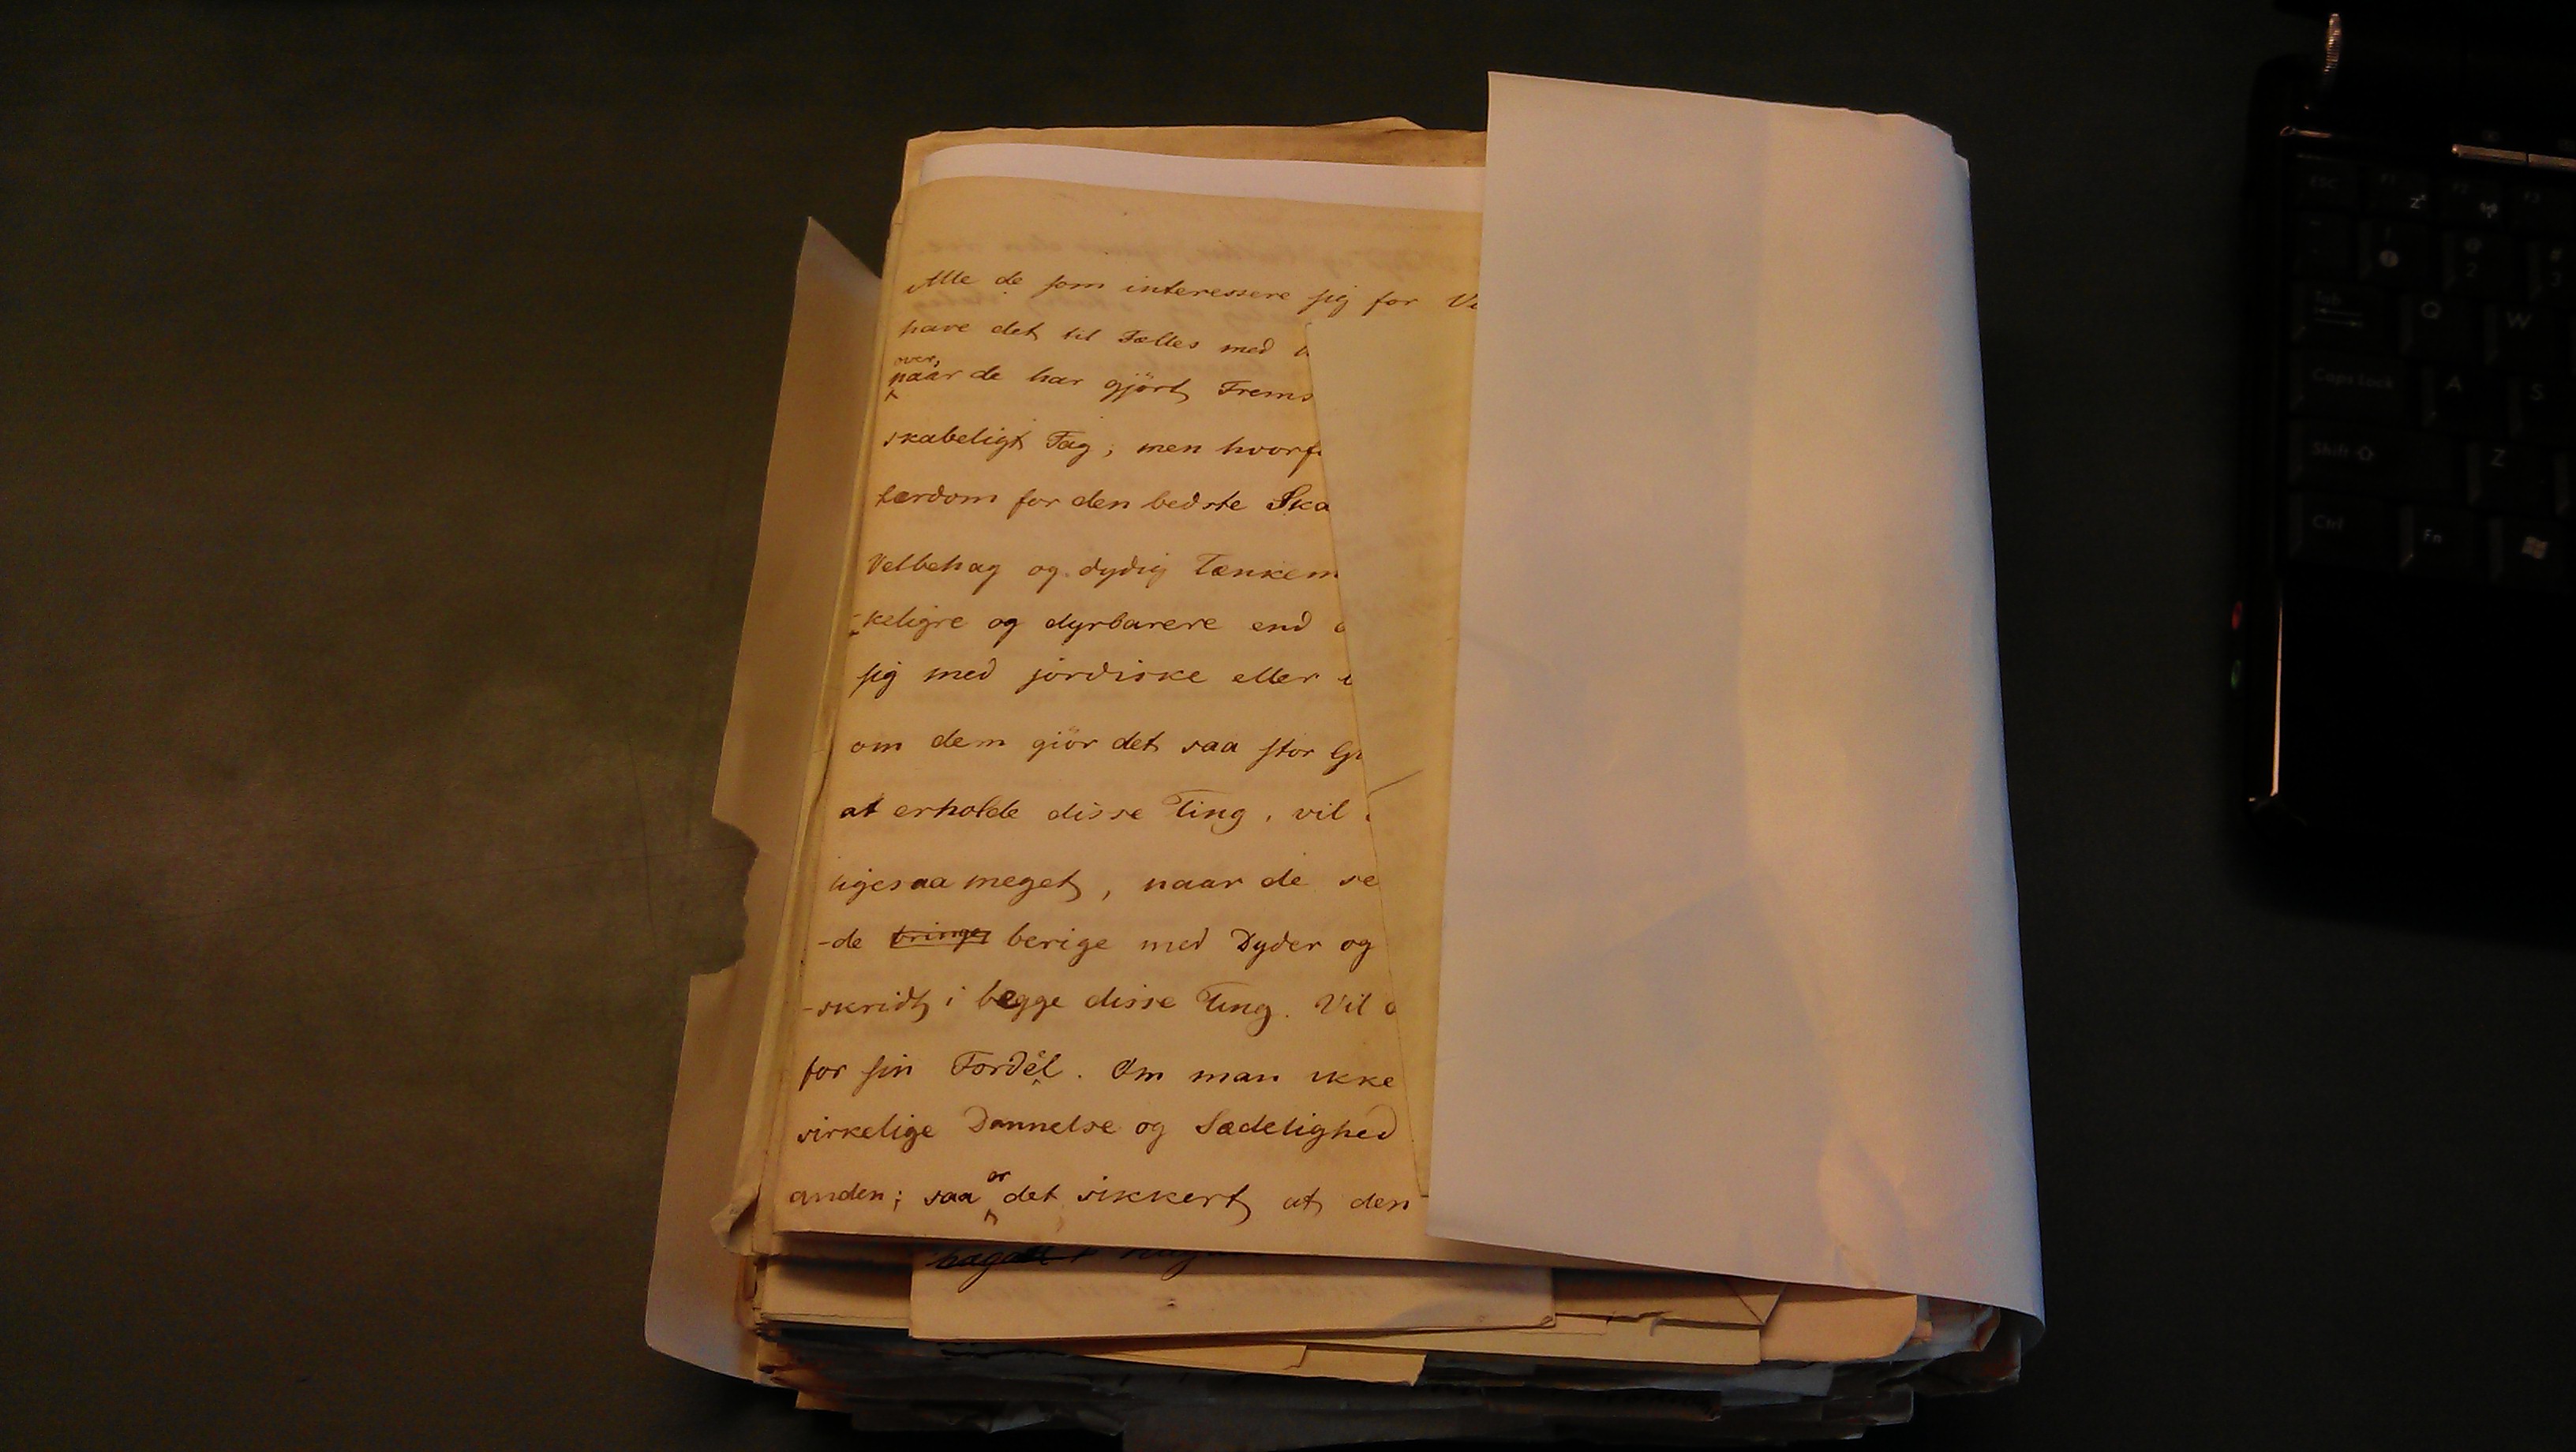 Alle de som interessere sig for
have det til Fælles med
over,
naar de har gjört Frems
skabeligt Fag; men hvorf
lærdom for den bedste Ska
Velbehag og dydig Tænkem
-keligre og dyrbarere end
sig med jordiske eller
om dem giör det saa stor
at erholde disse Ting, vil
ligesaa meget, naar de se
-de bringe berige med Dyder og
-skridt i begge disse Ting. Vil
for sin Fordel. Om man ikke
virkelige Dannelse og Sædelighed
er
anden; saa det sikkert at den
Tab
Caps Lock
Shift
Ctrl
Fn
Q
W
A
S
Z
2